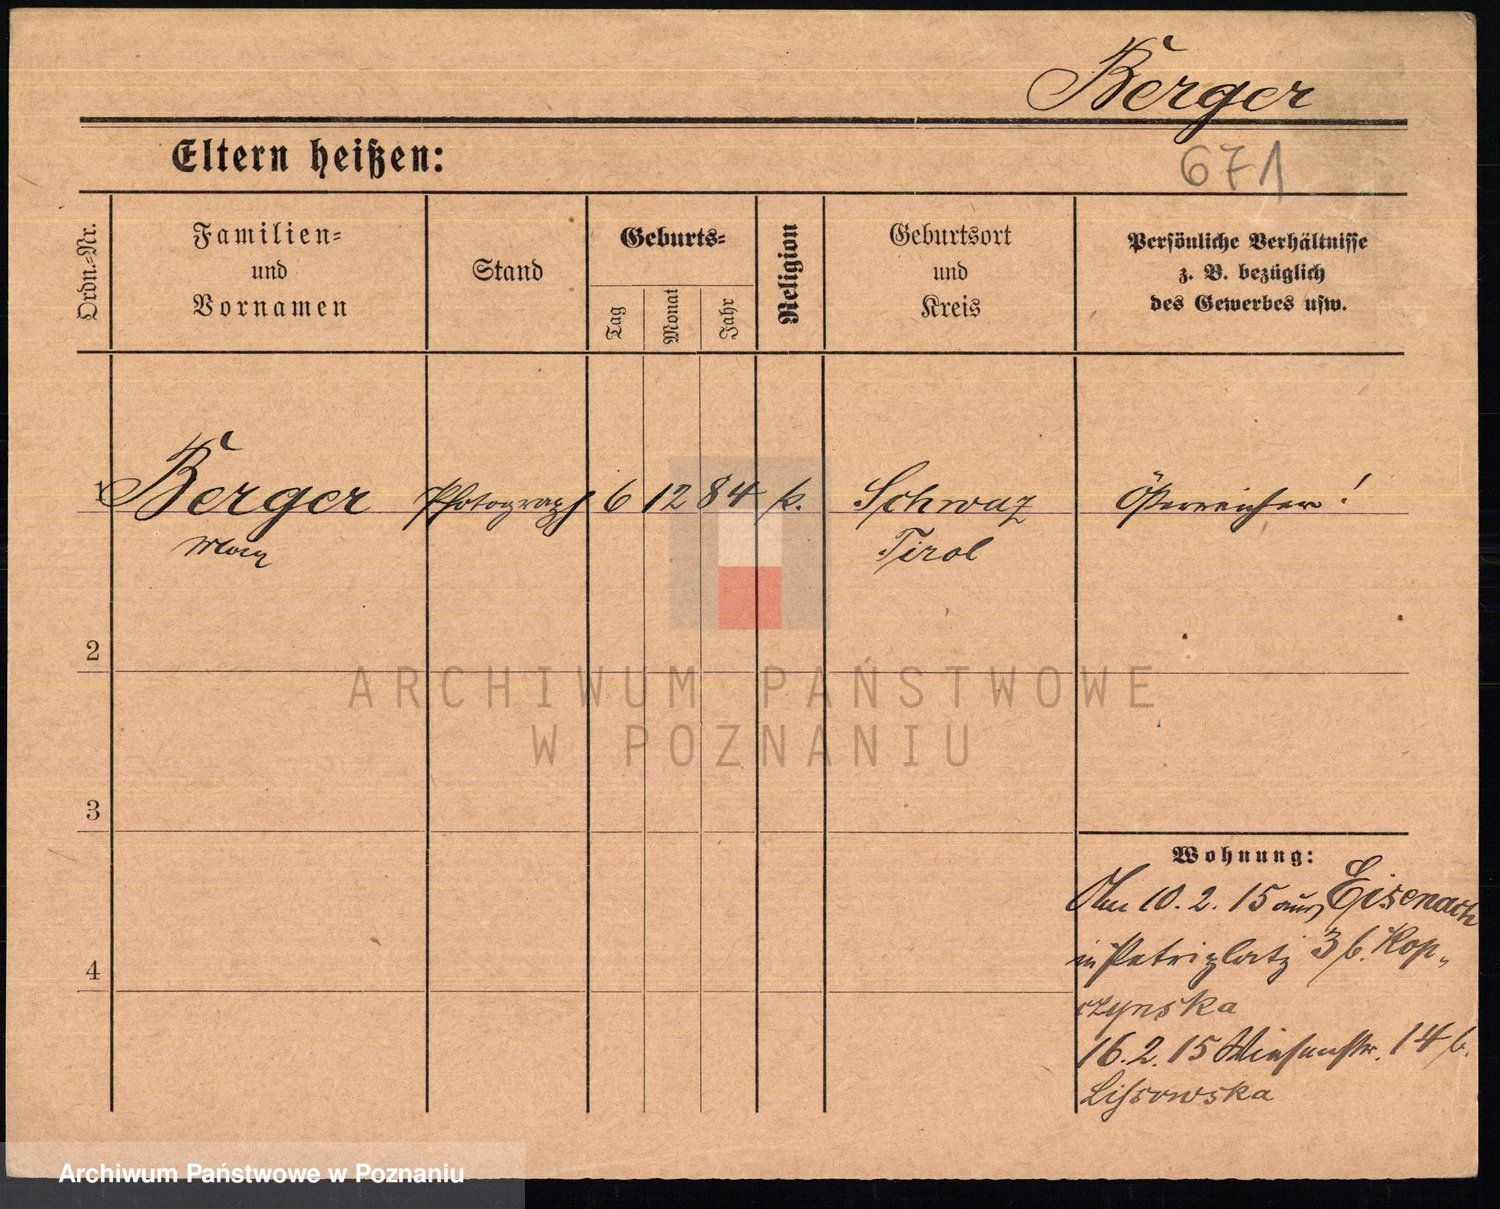 Berger
Eltern heißen:
671
Ordn.-Nr.
Familien-
und
Vornamen
Stand
Geburts-
Tag
Monat
Jahr
Religion
Geburtsort
und
Kreis
Persönliche Verhältnisse
z. B. bezüglich
des Gewerbes usw.
1 Berger Photograph 6 12 84 k. Schwaz Österreicher!
Max Tirol
2
3
4
Wohnung:
Am 10. 2. 15 aus Eisenach
in Petriplatz 3 b. Kop-
czynska
16. 2. 15 Wiesenstr. 14 b.
Lisowska
ARCHIWUM PAŃSTWOWE
W POZNANIU
Archiwum Państwowe w Poznaniu